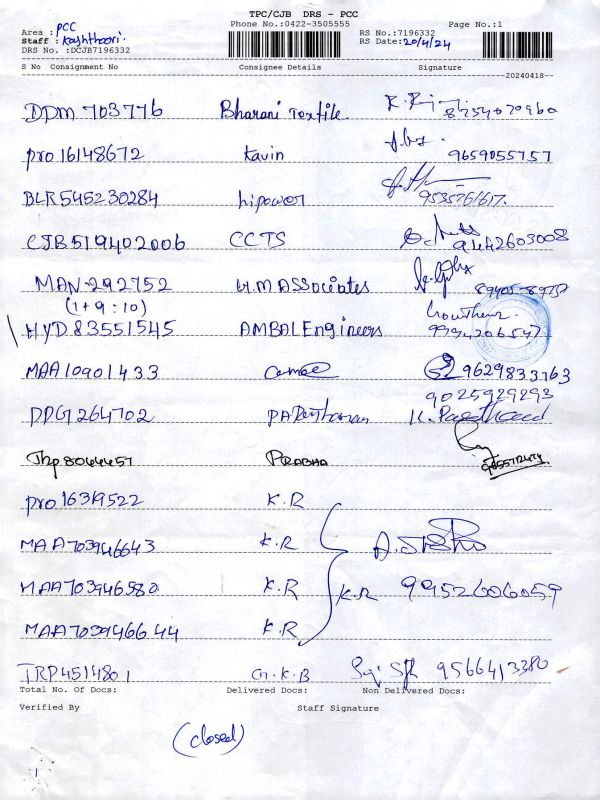 TPC/CJB DRS - PCC
Phone No.:0422-3505555 Page No.:1
Area : PCC
Staff : Kashthoori.
DRS No. :DCJB7196332
RS No.:7196332
RS Date:20/4/24
S No Consignment No Consignee Details Signature
--20240418--
DDM 703776 Bharani Textile 8754070960
pro 16148672 kavin 9659055757
BLR 545230284 hipower 953576/617.
CJB 519402006 CCTS 9442603008
MAN-292752 G.M ASSociates 89405-89757
(1+9:10)
HYD 83551545 AMBAL Engineers Gowtham 9994206547
MAA 10901433 9629833763
9025929293
DDG 264702 PARthanan K. Parthanan
Trp 8064457 PRABHA
pro 16319522 K.R
MAA703946643 K.R
MAA703946580 K.R K.R 9952606059
MAA703946644 K.R
TRP4514801 G.K.B 9566413380
Total No. Of Docs: Delivered Docs: Non Delivered Docs:
Verified By Staff Signature
(closed)